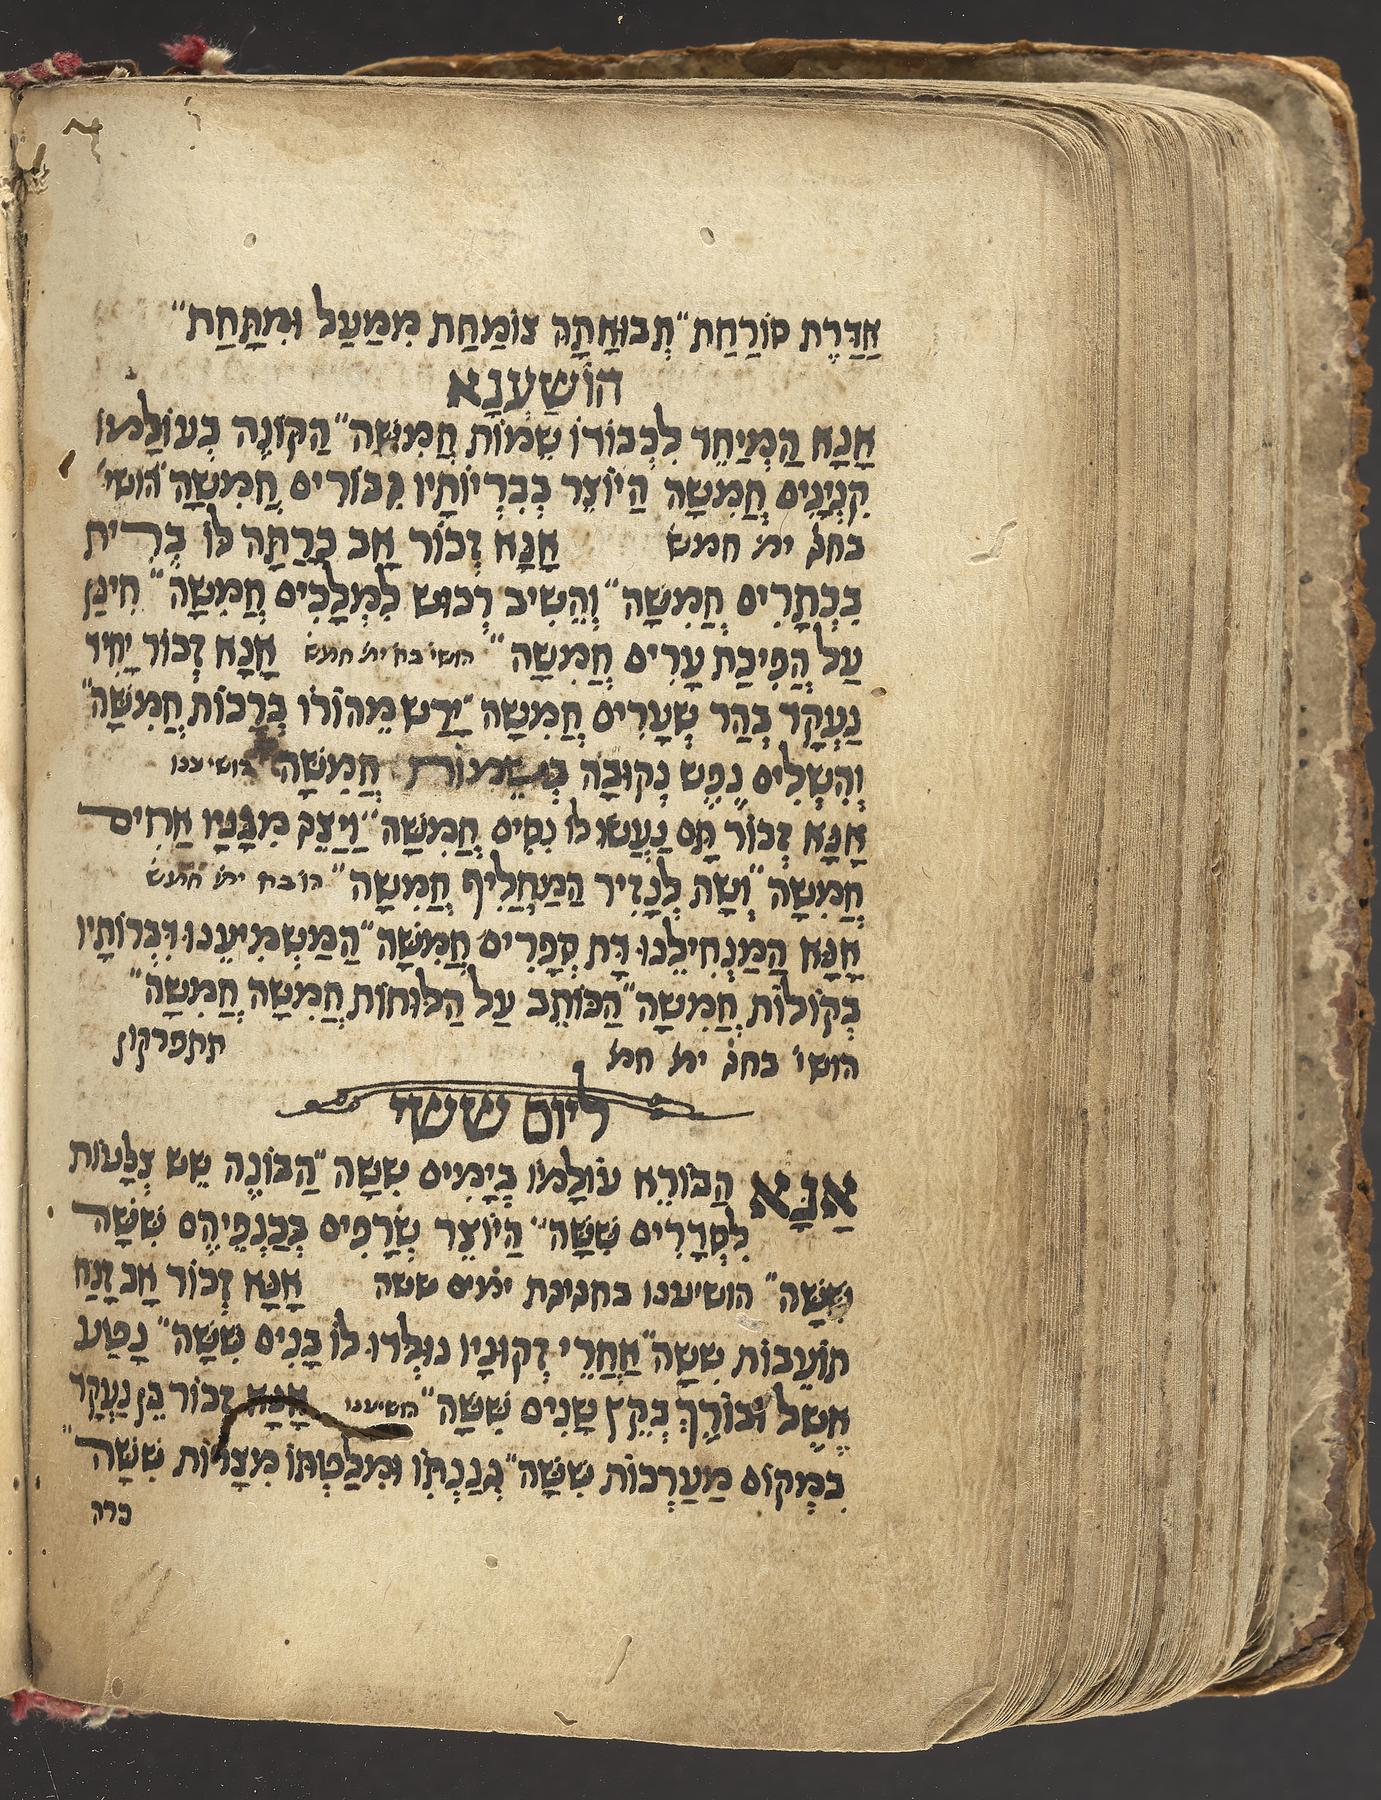 אַדֶּרֶת סוֹרַחַת״ תְּבוּאָתָהּ צוֹמַחַת מִמַּעַל וּמִתַּחַת״
הוֹשַׁעְנָא
אָנָּא הַמְיַחֵד לִכְבוֹדוֹ שֵׁמוֹת חֲמִשָּׁה״ הַקּוֹנֶה בְּעוֹלָמוֹ
קִנְיָנִים חֲמִשָּׁה הַיּוֹצֵר בִּבְרִיּוֹתָיו גִּבּוֹרִים חֲמִשָּׁה הושי׳
בחג ימ׳ חמש׳ אָנָּא זְכוֹר אָב כָּרַתָּה לוֹ בְּרִית
בִּבְתָרִים חֲמִשָּׁה״ וְהֵשִׁיב רְכוּשׁ לִמְלָכִים חֲמִשָּׁה״ חִינַּן
עַל הֲפִיכַת עָרִים חֲמִשָּׁה״ הושי׳ בח׳ ימ׳ חמש׳ אָנָּא זְכוֹר יָחִיד
נֶעְקַד בְּהַר שְׁעָרִים חֲמִשָּׁה״ יָרַשׁ מֵהוֹרוֹ בְּרָכוֹת חֲמִשָּׁה״
וְהִשְׁלִים נֶפֶשׁ נְקוּבָה בְּשֵׁמוֹת חֲמִשָּׁה הושיענו
אָנָּא זְכוֹר תָּם נַעֲשׂוּ לוֹ נִסִּים חֲמִשָּׁה״ וַיַּצֵּג מִבָּנָיו אַחִים
חֲמִשָּׁה״ וְשָׁת לְנָזִיר הַמַּחֲלִיף חֲמִשָּׁה״ הו בח׳ ימ׳ חמש׳
אָנָּא הַמַּנְחִילֵנוּ דָּת סְפָרִים חֲמִשָּׁה״ הַמַּשְׁמִיעֵנוּ דִּבְּרוֹתָיו
בְּקוֹלוֹת חֲמִשָּׁה״ הַכּוֹתֵב עַל הַלּוּחוֹת חֲמִשָּׁה חֲמִשָּׁה״
הושי׳ בחג ימ׳ חמ׳ תתפרקון
ליום ששי
אָנָּא הַבּוֹרֵא עוֹלָמוֹ בְּיָמִים שִׁשָּׁה״ הַבּוֹנֶה שֵׁשׁ צְלָעוֹת
לִסְדָרִים שִׁשָּׁה״ הַיּוֹצֵר שְׂרָפִים בְּכַנְפֵיהֶם שִׁשָּׁה
שִׁשָּׁה״ הושיענו בחגיגת ימים ששה אָנָּא זְכוֹר אָב זָנַח
תּוֹעֵבוֹת שִׁשָּׁה״ אַחֲרֵי זְקוּנָיו נוּלְּדוּ לוֹ בָּנִים שִׁשָּׁה״ נָטַע
אֶשֶׁל וּבוֹרַךְ בְּקֵץ שָׁנִים שִׁשָּׁה״ הושיענו אָנָּא זְכוֹר בֵּן נֶעְקַד
בִּמְקוֹם מַעַרְכוֹת שִׁשָּׁה״ גְּנַנְתּוֹ וּמִלַּטְתּוֹ מִצָּרוֹת שִׁשָּׁה״
כרה